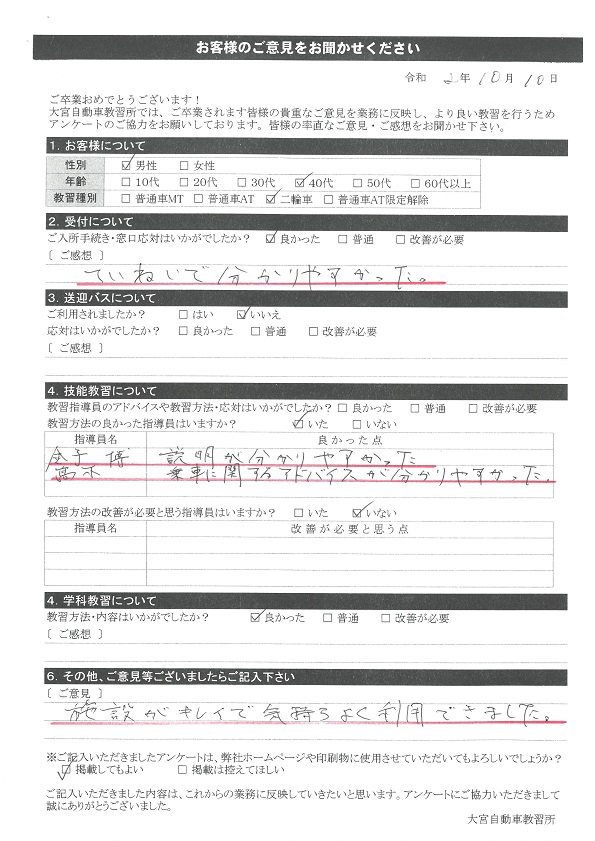 お客様のご意見をお聞かせください
令和 2年10月10日
ご卒業おめでとうございます！
大宮自動車教習所では、ご卒業されます皆様の貴重なご意見を業務に反映し、より良い教習を行うため
アンケートのご協力をお願いしております。皆様の率直なご意見・ご感想をお聞かせ下さい。
1. お客様について
性別 ☑男性 □女性
年齢 □10代 □20代 □30代 ☑40代 □50代 □60代以上
教習種別 □普通車MT □普通車AT ☑二輪車 □普通車AT限定解除
2. 受付について
ご入所手続き・窓口応対はいかがでしたか？ ☑良かった □普通 □改善が必要
〔 ご感想 〕
ていねいで分かりやすかった。
3. 送迎バスについて
ご利用されましたか？ □はい ☑いいえ
応対はいかがでしたか？ □良かった □普通 □改善が必要
〔 ご感想 〕
4. 技能教習について
教習指導員のアドバイスや教習方法・応対はいかがでしたか？ □良かった □普通 □改善が必要
教習方法の良かった指導員はいますか？ ☑いた □いない
指導員名 良かった点
金子 博 説明が分かりやすかった
高木 乗車に関するアドバイスが分かりやすかった。
教習方法の改善が必要と思う指導員はいますか？ □いた ☑いない
指導員名 改善が必要と思う点
4. 学科教習について
教習方法・内容はいかがでしたか？ ☑良かった □普通 □改善が必要
〔 ご感想 〕
6. その他、ご意見等ございましたらご記入下さい
〔 ご意見 〕
施設がキレイで気持ちよく利用できました。
※ご記入いただきましたアンケートは、弊社ホームページや印刷物に使用させていただいてもよろしいでしょうか？
☑掲載してもよい □掲載は控えてほしい
ご記入いただきました内容は、これからの業務に反映していきたいと思います。アンケートにご協力いただきまして
誠にありがとうございました。
大宮自動車教習所